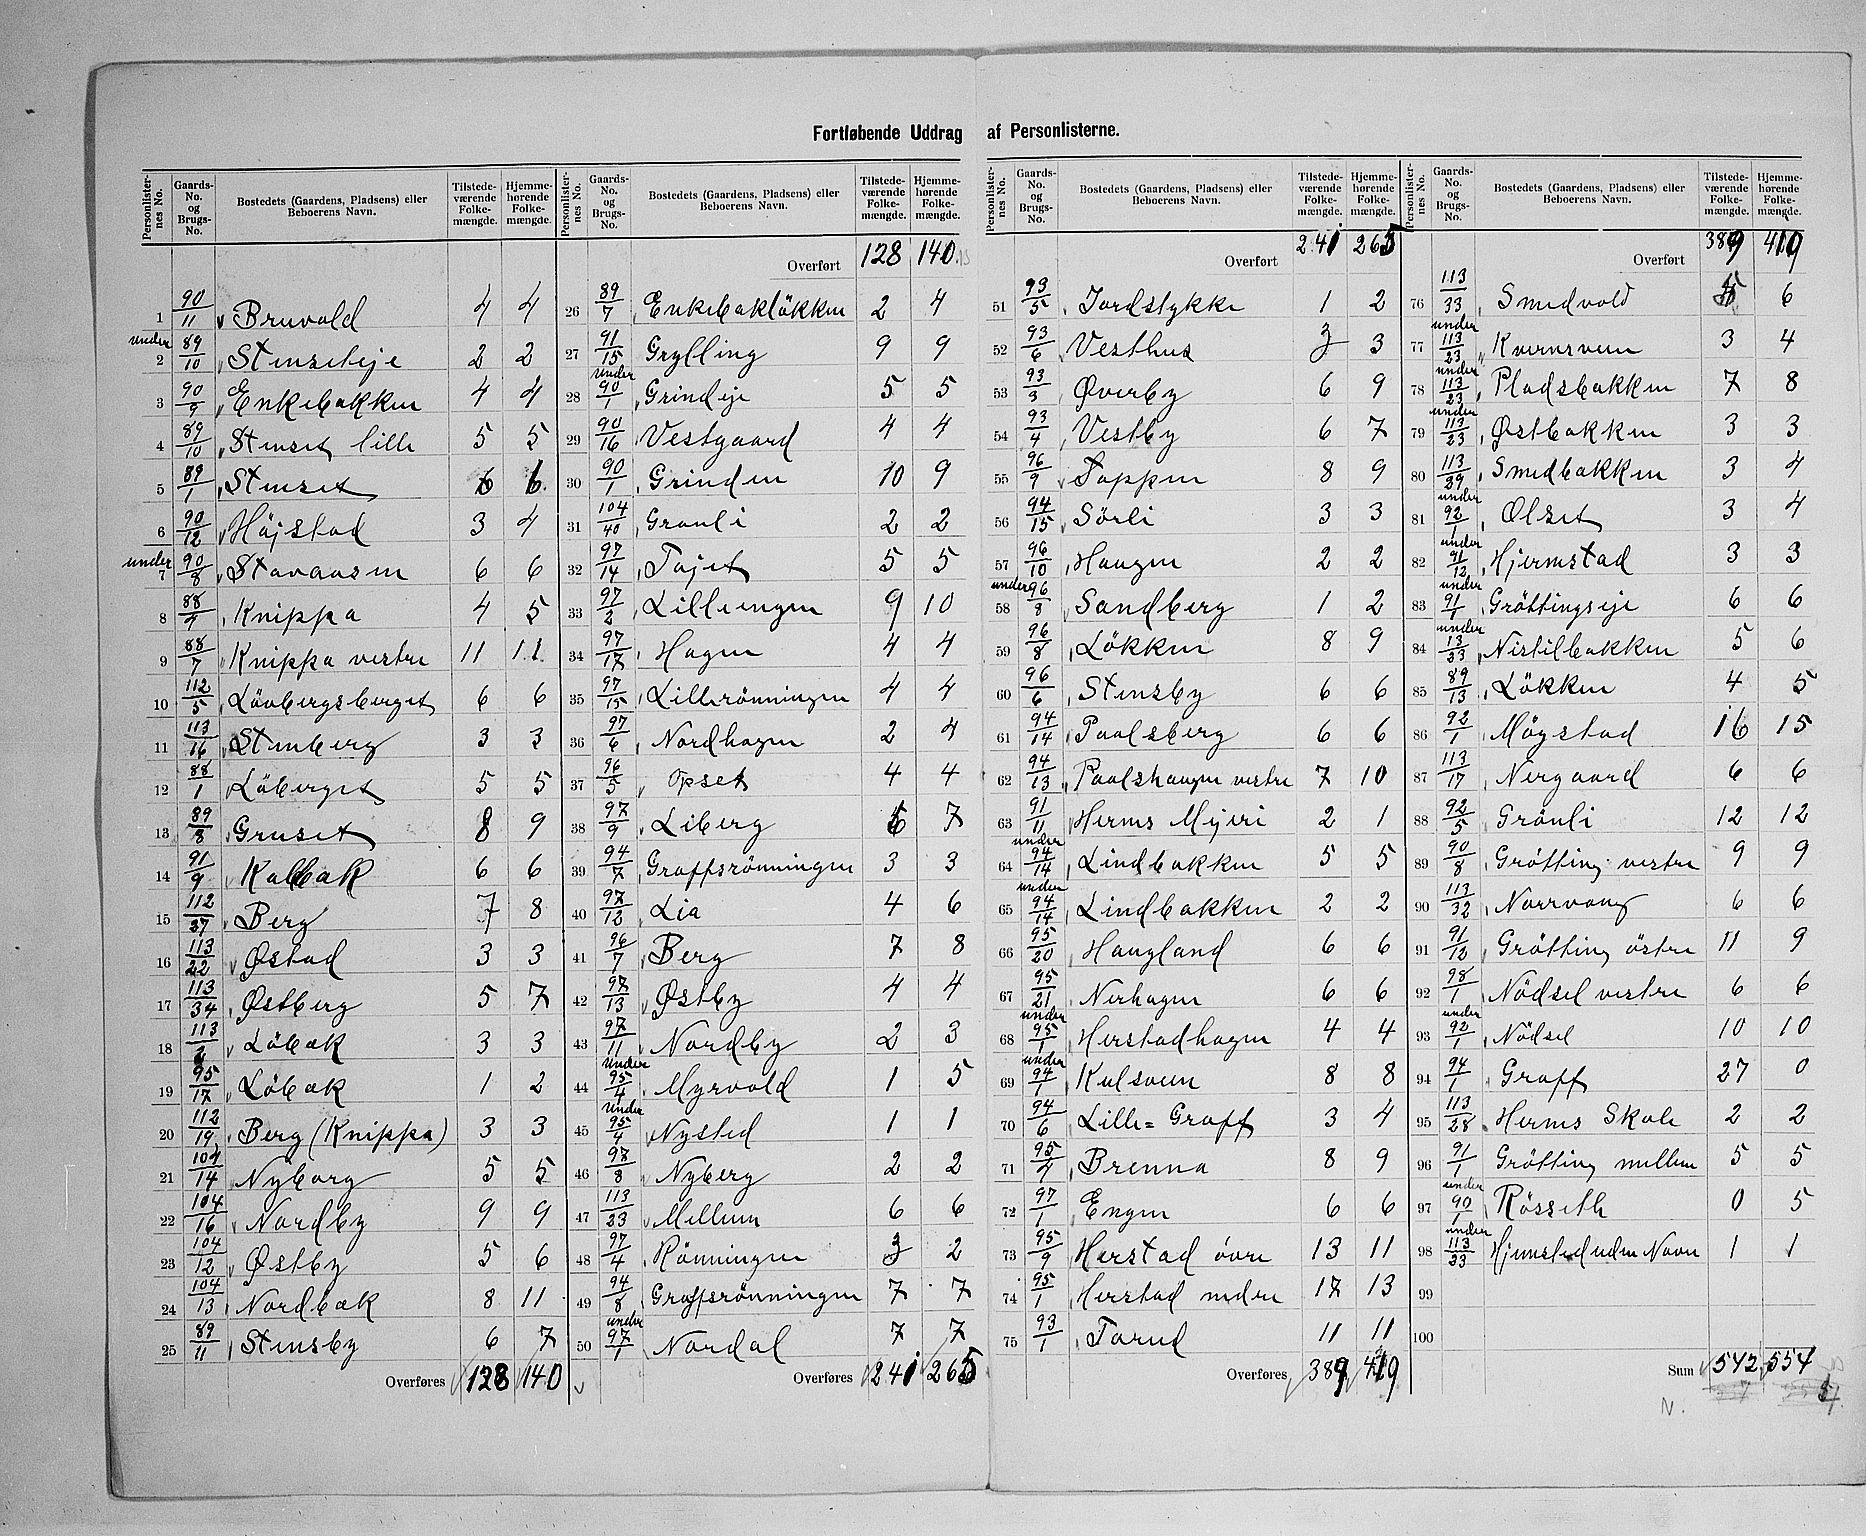 Fortløbende Uddrag af Personlisterne.
Personlister-nes No. | Gaards-No. og Brugs-No. | Bostedets (Gaardens, Pladsens) eller Beboerens Navn. | Tilstede-værende Folke-mængde. | Hjemme-hørende Folke-mængde.
1 90/11 Bruvold 4 4
2 under 89/10 Stenseteje 2 2
3 90/9 Enkebakken 4 4
4 89/10 Stenset lille 5 5
5 89/1 Stenset 6 6
6 90/12 Höjstad 3 4
7 under 90/8 Stavaasen 6 6
8 88/7 Knippa 4 5
9 88/7 Knippa vestre 11 11
10 112/5 Lövbergsberget 6 6
11 113/16 Stenberg 3 3
12 88/1 Löberget 5 5
13 89/8 Gruset 8 9
14 91/9 Kalbak 6 6
15 112/27 Berg 7 8
16 113/22 Østad 3 3
17 113/34 Østberg 5 7
18 113/2 Löbæk 3 3
19 95/17 Löbæk 1 2
20 112/19 Berg (Knippa) 3 3
21 104/14 Nyborg 5 5
22 104/16 Nordby 9 9
23 104/12 Østby 5 6
24 104/13 Nordbæk 8 11
25 89/11 Stensby 6 7
Overføres 128 140
Personlister-nes No. | Gaards-No. og Brugs-No. | Bostedets (Gaardens, Pladsens) eller Beboerens Navn. | Tilstede-værende Folke-mængde. | Hjemme-hørende Folke-mængde.
Overført 128 140
26 89/7 Enkebakløkken 2 4
27 91/15 Grylling 9 9
28 under 90/1 Grindeje 5 5
29 90/16 Vestgaard 4 4
30 90/1 Grinden 10 9
31 104/40 Granli 2 2
32 97/14 Tajet 5 5
33 97/2 Lilleengen 9 10
34 97/17 Hagen 4 4
35 97/15 Lillerönningen 4 4
36 97/6 Nordhagen 2 4
37 96/5 Opset 4 4
38 97/9 Liberg 6 7
39 94/7 Graffsrönningen 3 3
40 97/12 Lia 4 6
41 96/7 Berg 7 8
42 97/13 Østby 4 4
43 97/11 Nordby 2 3
44 under 95/4 Myrvold 1 5
45 under 95/4 Nysted 1 1
46 97/8 Nyberg 2 2
47 113/23 Mellem 6 6
48 97/4 Rönningen 3 2
49 94/8 Graffsrönningen 7 7
50 under 97/1 Nordal 7 7
Overføres 241 265
Personlister-nes No. | Gaards-No. og Brugs-No. | Bostedets (Gaardens, Pladsens) eller Beboerens Navn. | Tilstede-værende Folke-mængde. | Hjemme-hørende Folke-mængde.
Overført 241 265
51 93/5 Jordstykke 1 2
52 93/6 Vesthus 3 3
53 93/3 Øverby 6 9
54 93/4 Vestby 6 7
55 96/9 Tappen 8 9
56 94/15 Sörli 3 3
57 96/10 Haugen 2 2
58 under 96/8 Sandberg 1 2
59 96/8 Løkken 8 9
60 96/6 Stensby 6 6
61 94/14 Paalsberg 6 6
62 94/13 Paalshaugen vestre 7 10
63 91/11 Hernes Mejeri 2 1
64 under 94/14 Lindbakken 5 5
65 under 94/14 Lindbakken 2 2
66 95/20 Haugland 6 6
67 95/21 Nerhagen 6 6
68 under 95/1 Herstadhagen 4 4
69 under 94/1 Kulsveen 8 8
70 94/6 Lille=Graff 3 4
71 95/4 Brenna 8 9
72 97/1 Engen 6 6
73 95/9 Herstad övre 13 11
74 95/1 Herstad nedre 17 13
75 93/1 Tarud 11 11
Overføres 389 419
Personlister-nes No. | Gaards-No. og Brugs-No. | Bostedets (Gaardens, Pladsens) eller Beboerens Navn. | Tilstede-værende Folke-mængde. | Hjemme-hørende Folke-mængde.
Overført 389 419
76 113/33 Smedvold 6
77 under 113/23 Kvernveen 3 4
78 under 113/23 Pladsbakken 7 8
79 under 113/23 Østbakken 3 3
80 113/29 Smedbakken 3 4
81 under 92/1 Olset 3 4
82 under 91/12 Hjermstad 3 3
83 under 91/1 Gröttingseje 6 6
84 under 13/33 Nistilbakken 5 6
85 89/13 Løkken 4 5
86 92/1 Møystad 16 15
87 113/17 Nergaard 6 6
88 92/5 Grönli 12 12
89 90/8 Grötting vestre 9 9
90 113/32 Norrvang 6 6
91 91/12 Grötting östre 11 9
92 98/1 Nödsel vestre 6 6
93 under 92/1 Nödsel 10 10
94 94/1 Graff 27 0
95 113/28 Hernes Skole 2 2
96 91/1 Grötting mellem 5 5
97 under 90/1 Rösseth 0 5
98 under 113/33 Hjemsted uden Navn 1 1
99
100
Sum 542 554
N.